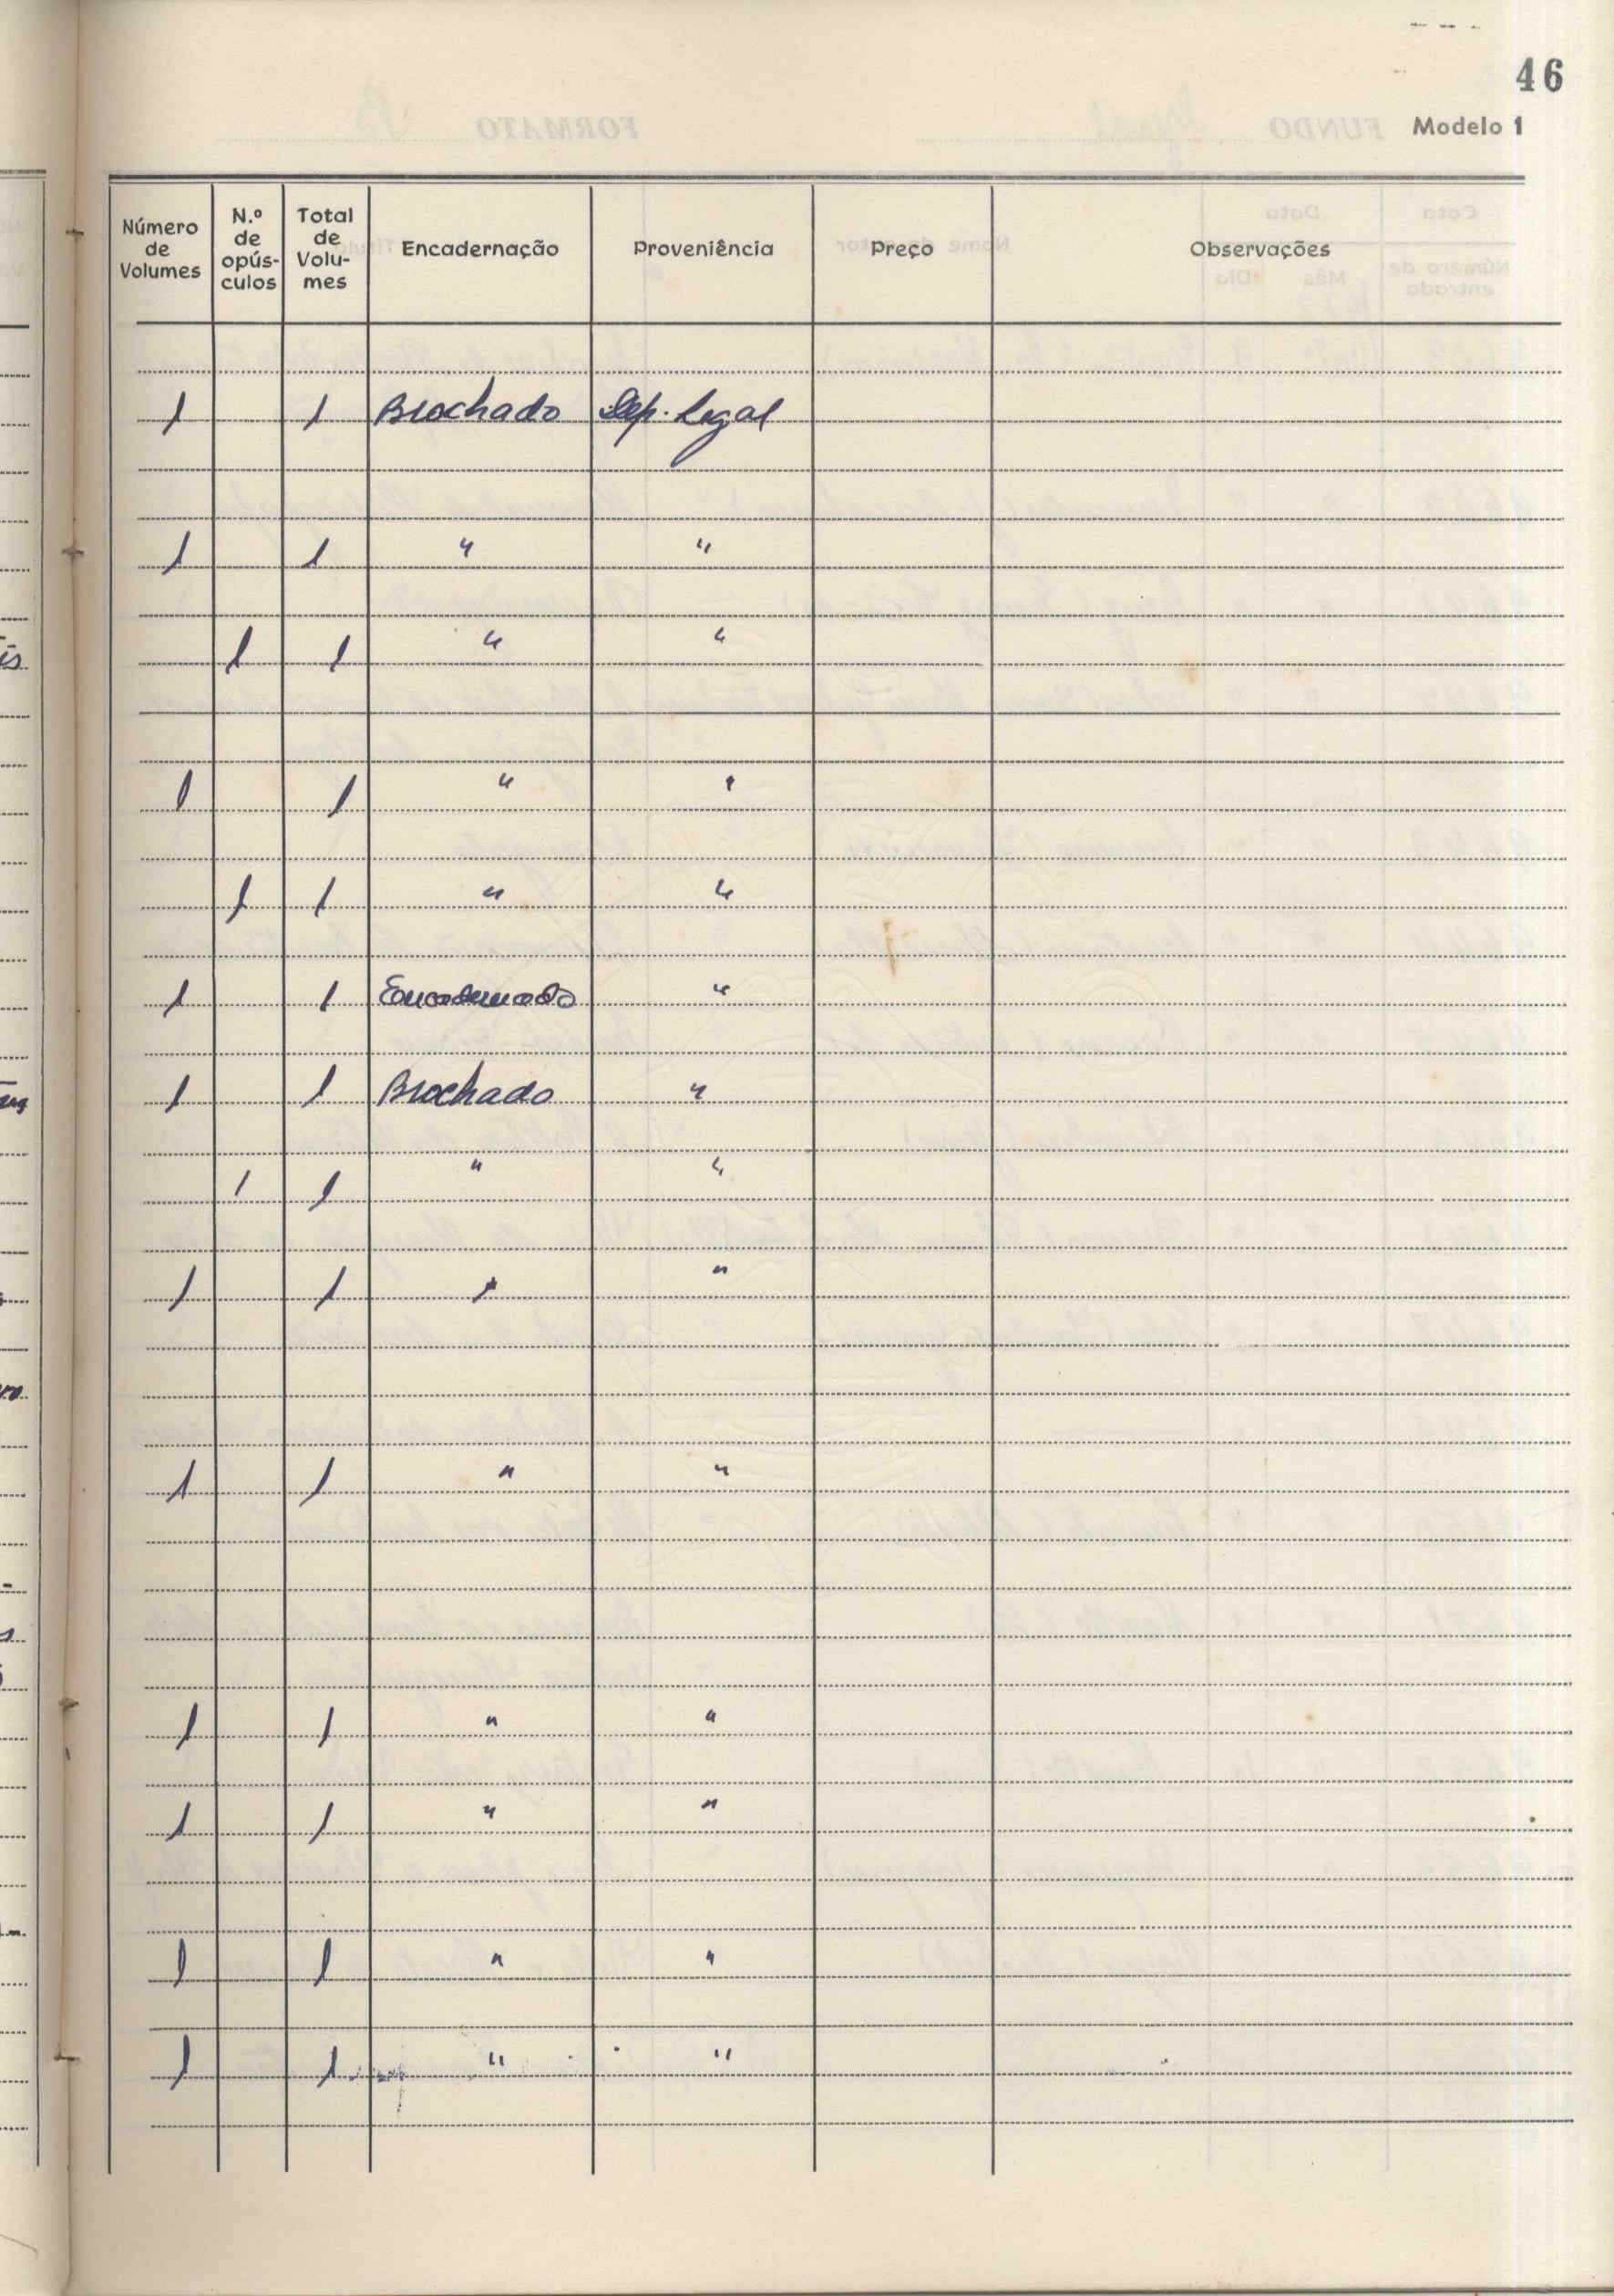 46
Modelo 1
Número de Volumes N.º de opús-culos Total de Volu-mes Encadernação Proveniência Preço Observações
1 1 Brochado Dep. Legal
1 1 " "
1 1 " "
1 1 " "
1 1 " "
1 1 Encadernado "
1 1 Brochado "
1 1 " "
1 1 " "
1 1 " "
1 1 " "
1 1 " "
1 1 " "
1 1 " "